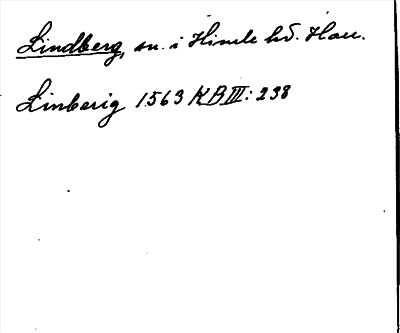 Lindberg, sn. i Himle hd. Hall.
Linberig 1563 KB III: 238